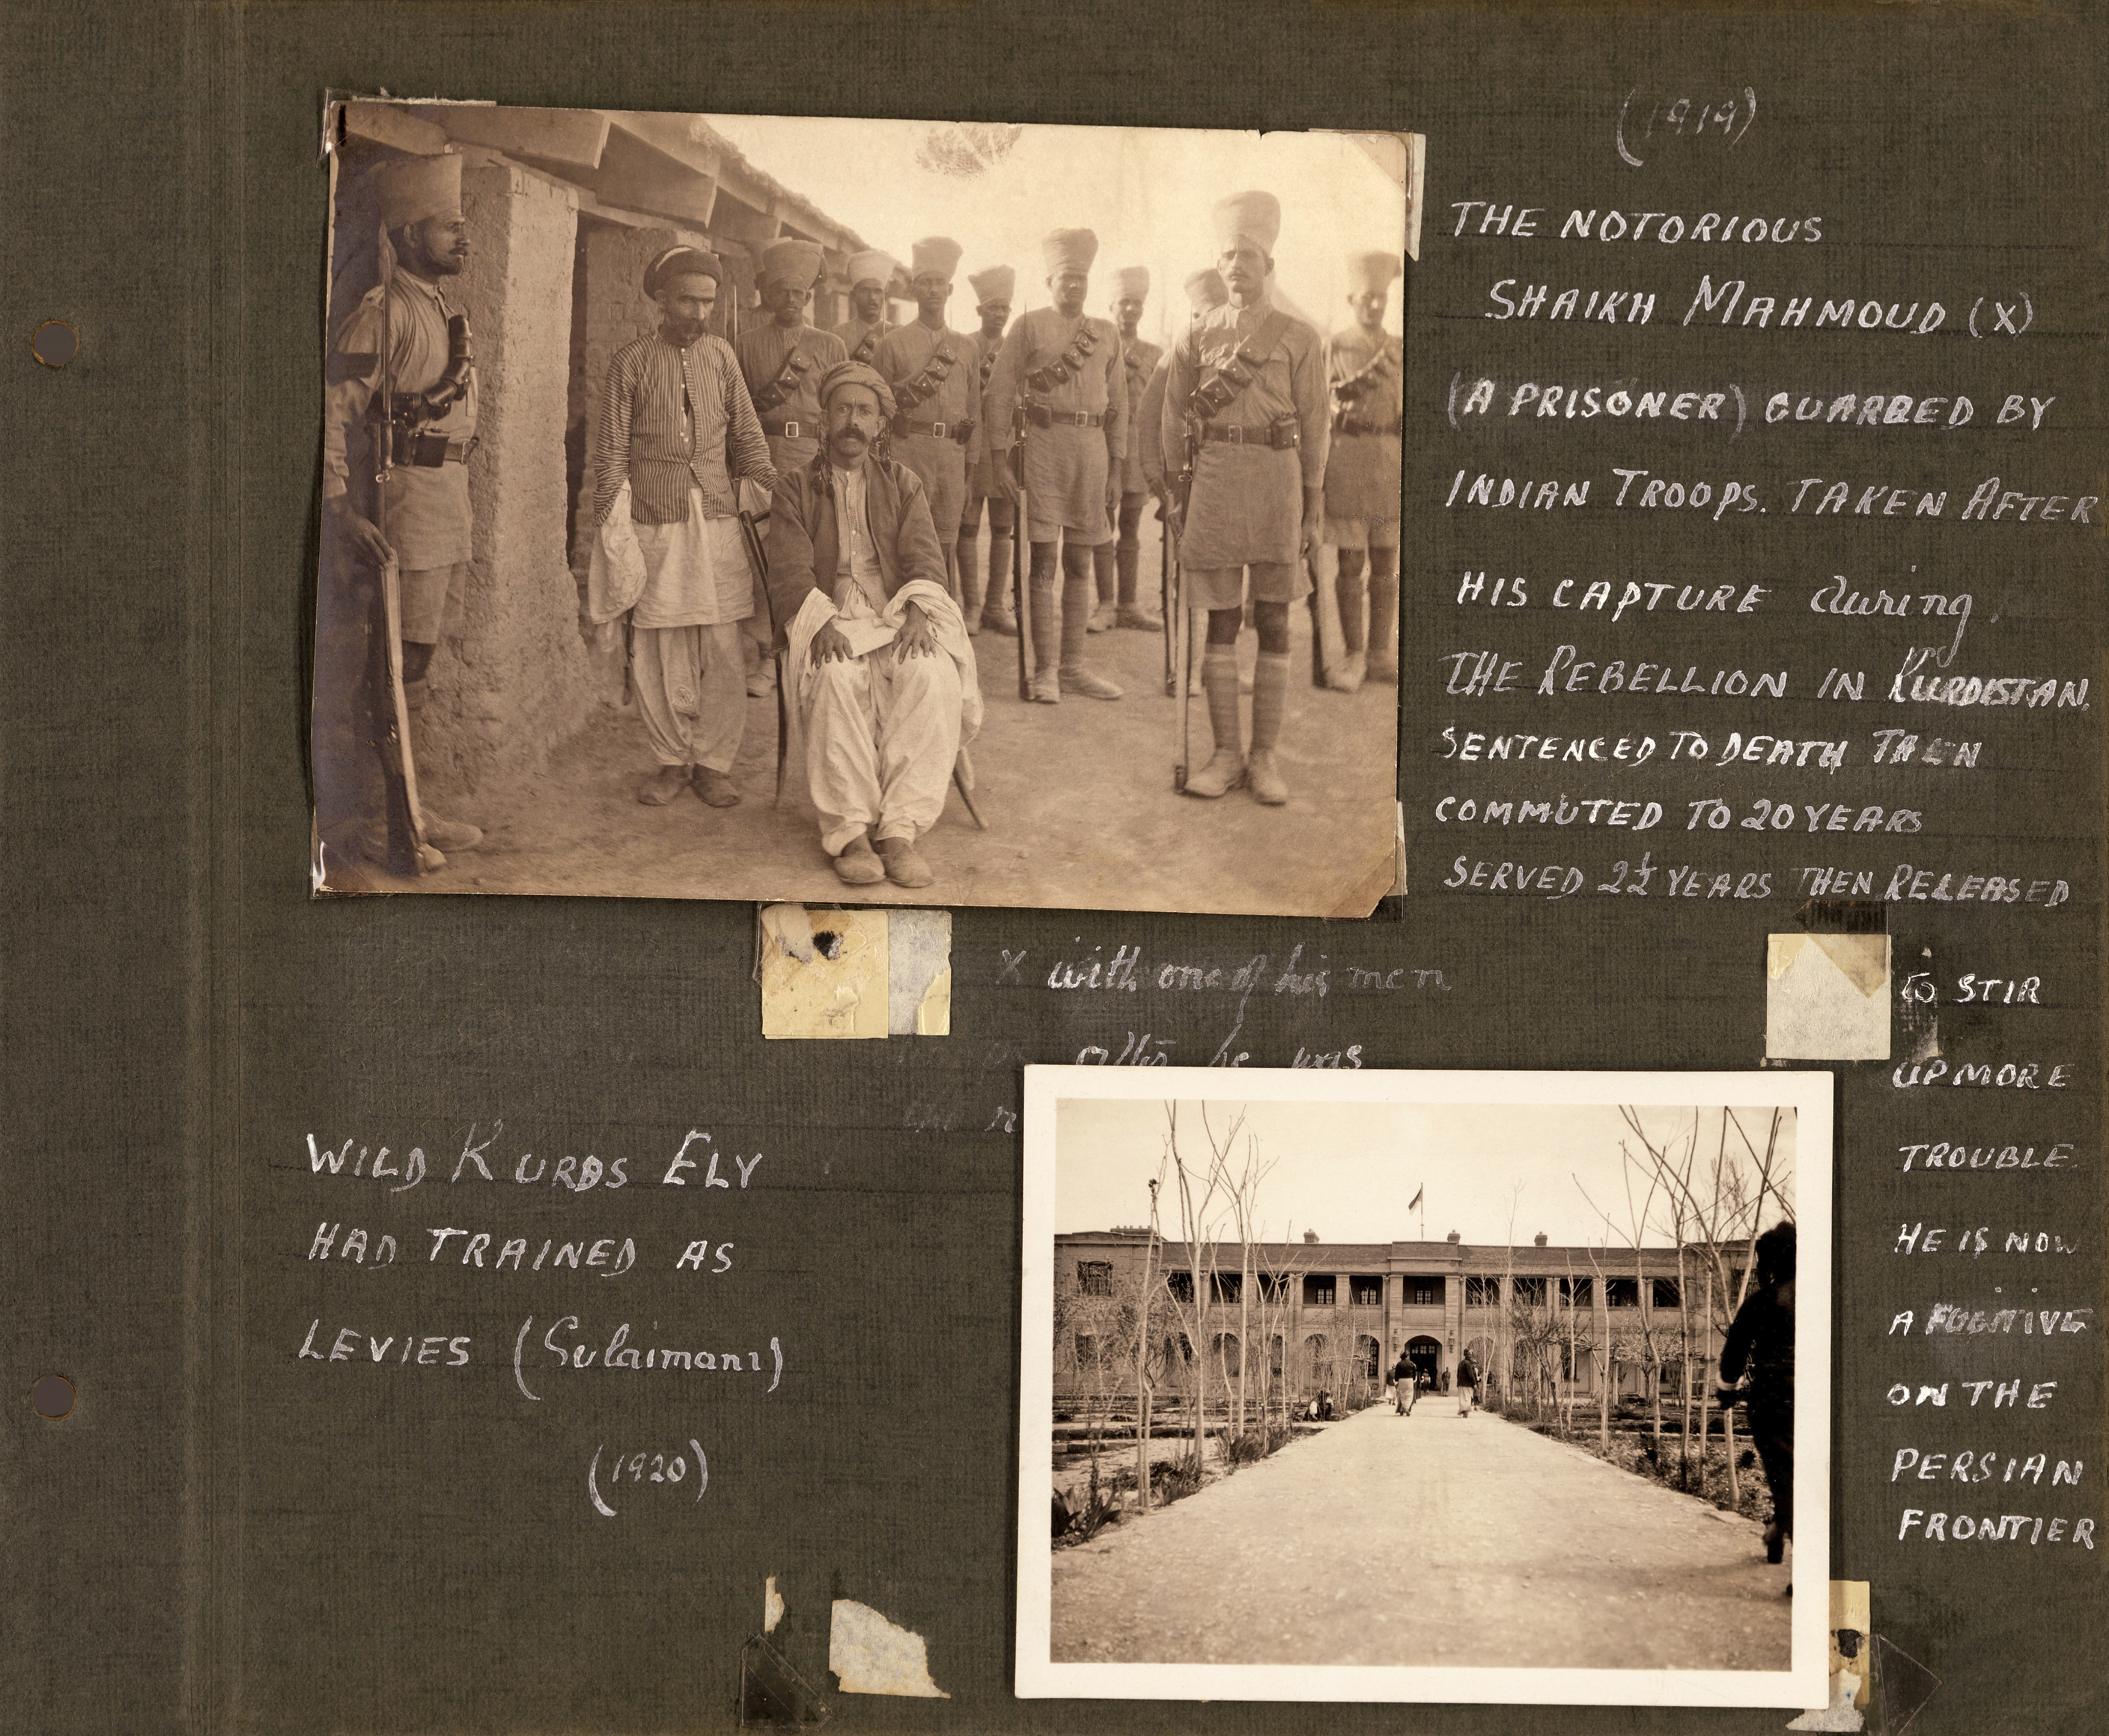 (1919)
THE NOTORIOUS
SHAIKH MAHMOUD (X)
(A PRISONER) GUARDED BY
INDIAN TROOPS. TAKEN AFTER
HIS CAPTURE during
THE REBELLION IN KURDISTAN.
SENTENCED TO DEATH THEN
COMMUTED TO 20 YEARS
SERVED 2½ YEARS THEN RELEASED
TO STIR
UP MORE
TROUBLE.
HE IS NOW
A FUGITIVE
ON THE
PERSIAN
FRONTIER
X with one of his men
after he was
the
WILD KURDS ELY
HAD TRAINED AS
LEVIES (Sulaimani)
(1920)